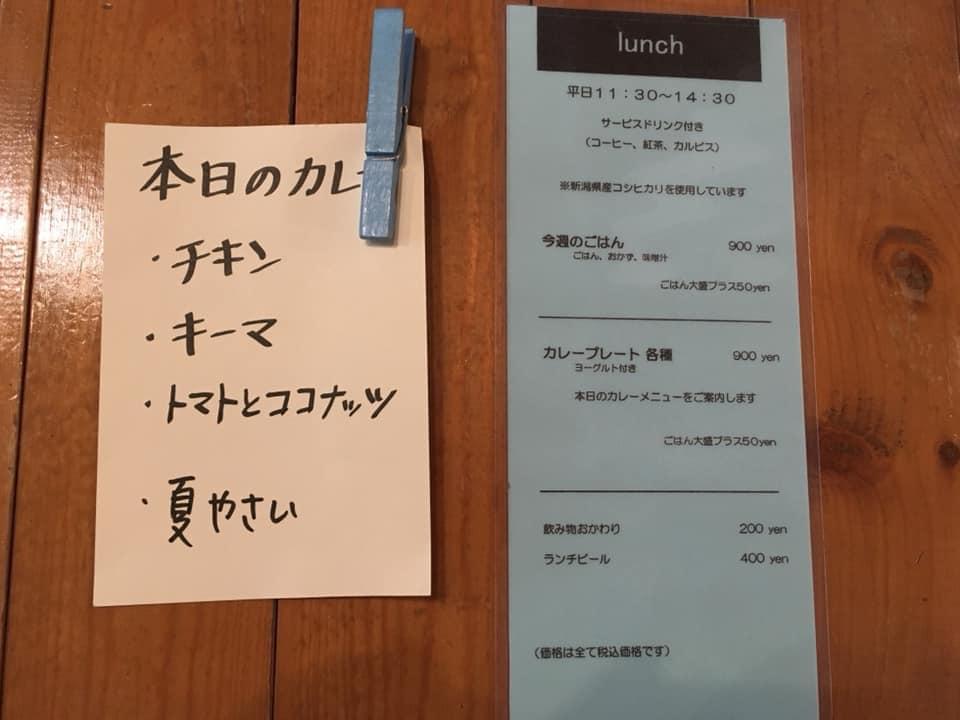 本日のカレ
・チキン
・キーマ
・トマトとココナッツ
・夏やさい
lunch
平日11：30～14：30
サービスドリンク付き
（コーヒー、紅茶、カルピス）
※新潟県産コシヒカリを使用しています
今週のごはん 900 yen
ごはん、おかず、味噌汁
ごはん大盛プラス50yen
カレープレート 各種 900 yen
ヨーグルト付き
本日のカレーメニューをご案内します
ごはん大盛プラス50yen
飲み物おかわり 200 yen
ランチビール 400 yen
（価格は全て税込価格です）